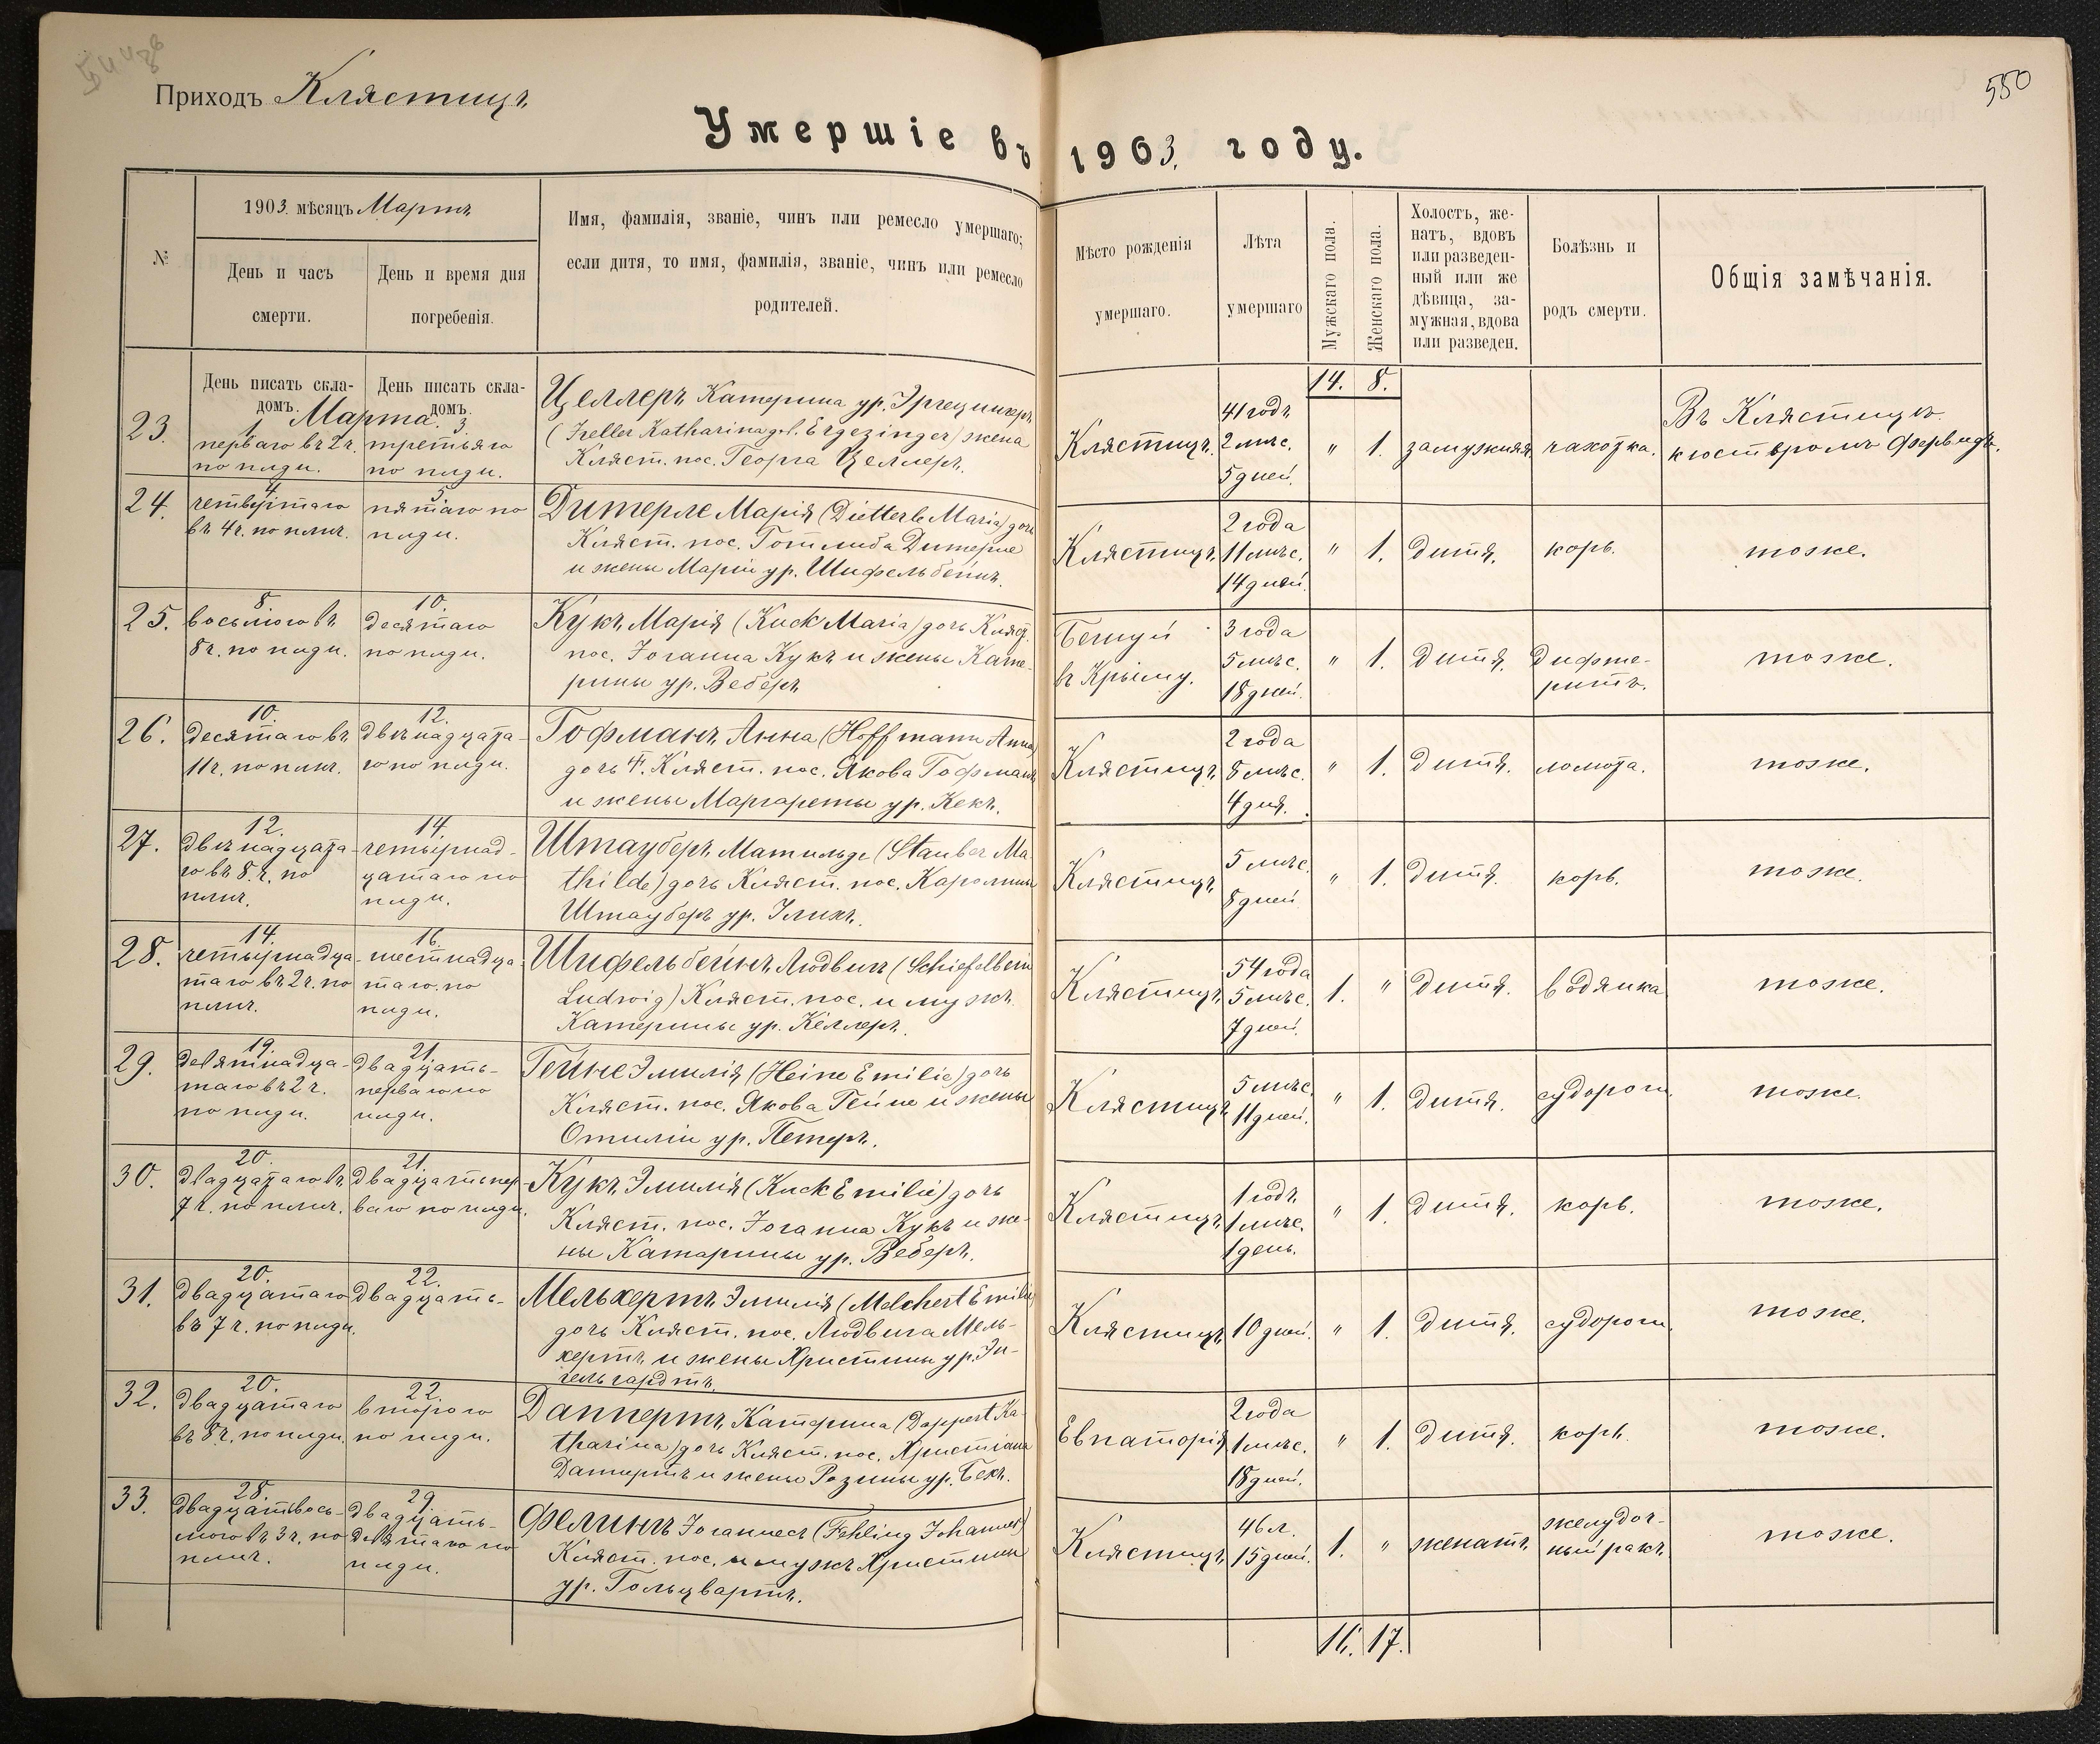 Приходъ Клястицъ
550
Умершіе въ 1903. году.
№
1903. мѣсяцъ Мартъ
День и часъ смерти.
День и время дня погребенія.
Имя, фамилія, званіе, чинъ или ремесло умершаго;
если дитя, то имя, фамилія, званіе, чинъ или ремесло
родителей.
Мѣсто рожденія умершаго.
Лѣта умершаго
Мужскаго пола.
Женскаго пола.
Холостъ, же-
натъ, вдовъ
или разведен-
ный или же
дѣвица, за-
мужная, вдова
или разведен.
Болѣзнь и родъ смерти.
Общія замѣчанія.
День писать скла-
домъ.
День писать скла-
домъ.
Марта.
14. 8.
23.
1.
перваго въ 2 ч.
по плдн.
3.
третьяго
по плдн.
Целлеръ Катерина ур. Эргецингеръ
(Zeller Katharina geb. Ergezinger) жена
Кляст. пос. Георга Целлеръ.
Клястицъ.
41 годъ
2 мѣс.
5 дней.
" 1.
замужняя.
чахотка.
Въ Клястицѣ
кюстеромъ
24.
4.
четвертаго
въ 4 ч. по плнч.
5.
пятаго по
плдн.
Дитерле Марія (Dietterle Maria) дочь
Кляст. пос. Готлиба Дитерле
и жены Маріи ур. Шифельбейнъ.
Клястицъ.
2 года
11 мѣс.
14 дней.
" 1.
дитя.
корь.
тоже.
25.
8.
восьмого въ
8 ч. по плдн.
10.
десятаго
по плдн.
Кукъ Марія (Kuck Maria) дочь Кляст.
пос. Іоганна Кукъ и жены Кате-
рины ур. Веберъ
Бешуй
въ Крыму.
3 года
5 мѣс.
18 дней.
" 1.
дитя.
дифте-
ритъ.
тоже.
26.
10.
десятаго въ
11 ч. по плнч.
12.
двѣнадцата-
го по плдн.
Гофманъ Анна (Hoffmann Anna)
дочь Кляст. пос. Якова Гофманъ
и жены Маргареты ур. Кекъ.
Клястицъ
2 года
8 мѣс.
4 дня.
" 1.
дитя.
ломота.
тоже.
27.
12.
двѣнадцата-
го въ 8. ч. по
плнч.
14.
четырнад-
цатаго по
плдн.
Штауберъ Матильде (Stauber Ma-
thilde) дочь Кляст. пос. Каролины
Штауберъ ур. Иликъ.
Клястицъ
5 мѣс.
8 дней
" 1.
дитя.
корь.
тоже.
28.
14.
четырнадца-
таго въ 2 ч. по
плнч.
16.
шестнадца-
таго. по
плдн.
Шифельбейнъ Людвигъ (Schiefelbein
Ludwig) Кляст. пос. и мужъ
Катерины ур. Келлеръ.
Клястицъ
54 года
5 мѣс.
7 дней.
1. "
дитя.
водянка
тоже.
29.
19.
девятнадца-
таго въ 2 ч.
по плдн.
21.
двадцать-
перваго по
плдн.
Гейне Эмилія (Heine Emilie) дочь
Кляст. пос. Якова Гейне и жены
Отиліи ур. Петеръ.
Клястицъ
5 мѣс.
11 дней.
" 1.
дитя.
судороги.
тоже.
30.
20.
двадцатаго въ
7 ч. по плнч.
21.
двадцатьпер-
ваго по плдн.
Кукъ Эмилія (Kuck Emilie) дочь
Кляст. пос. Іоганна Кукъ и же-
ны Катарины ур. Веберъ.
Клястицъ
1 годъ
1 мѣс.
1 день.
" 1.
дитя.
корь.
тоже.
31.
20.
двадцатаго
въ 7 ч. по плдн.
22.
двадцать-
Мельхертъ Эмилія (Melchert Emilie)
дочь Кляст. пос. Людвига Мель-
хертъ и жены Христины ур. Эн-
гельгардтъ.
Клястицъ
10 дней.
" 1.
дитя.
судороги.
тоже.
32.
20.
двадцатаго
въ 8 ч. по плдн.
22.
второго
по плдн.
Даппертъ Катерина (Dappert Ka-
tharina) дочь Кляст. пос. Христіана
Даппертъ и жены Розины ур. Бекъ.
Евпаторія
2 года
1 мѣс.
18 дней.
" 1.
дитя.
корь.
тоже.
33.
28.
двадцатьвось-
мого въ 3 ч. по
плнч.
29.
двадцать-
девятаго по
плдн.
Фелингъ Іоганнесъ (Fehling Johannes)
Кляст. пос. и мужъ Христины
ур. Гольцвартъ.
Клястицъ
46 л.
15 дней.
1. "
женатъ.
желудоч-
ный ракъ.
тоже.
16. 17.